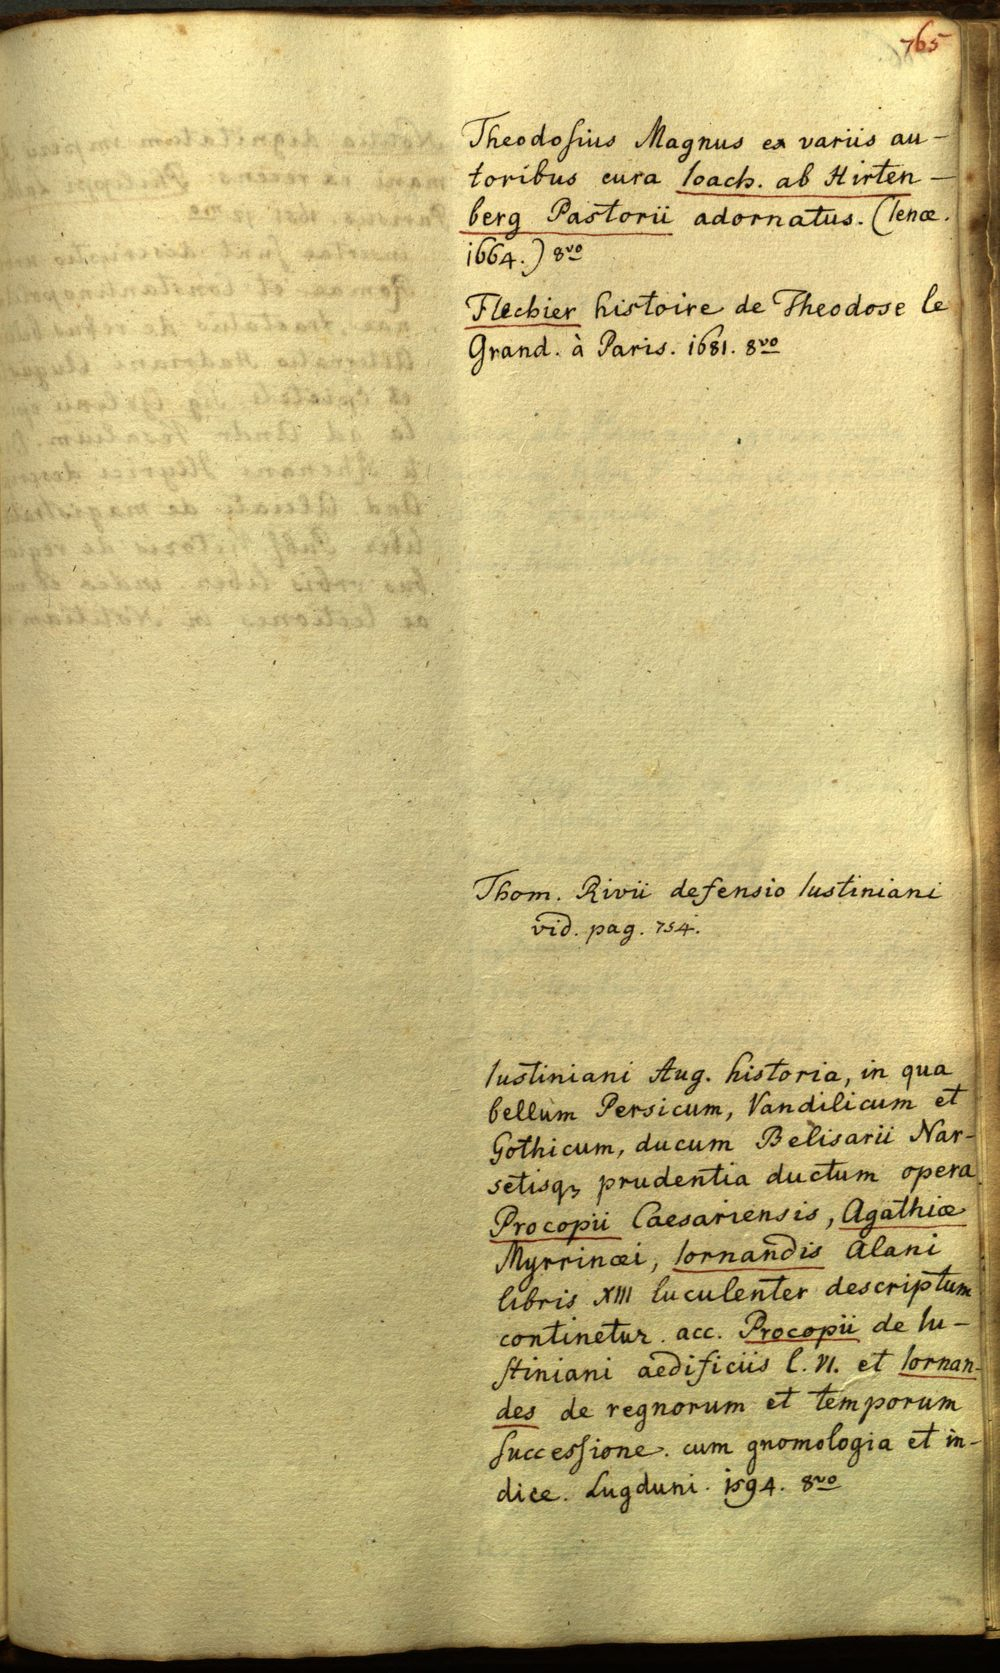 765
Theodosius Magnus ex variis au-
toribus cura Ioach. ab Hirten-
berg Pastorii adornatus. (Ienæ.
1664.) 8vo
Flechier histoire de Theodose le
Grand. à Paris. 1681. 8vo
Thom. Rivii defensio Iustiniani
vid. pag. 754.
Iustiniani Aug. historia, in qua
bellum Persicum, Vandilicum et
Gothicum, ducum Belisarii Nar-
setisq; prudentia ductum opera
Procopii Caesariensis, Agathiæ
Myrrinæi, Iornandis Alani
libris XIII luculenter descriptum
continetur. acc. Procopii de Iu-
stiniani aedificiis l. VI. et Iornan-
des de regnorum et temporum
successione. cum gnomologia et in-
dice. Lugduni. 1594. 8vo